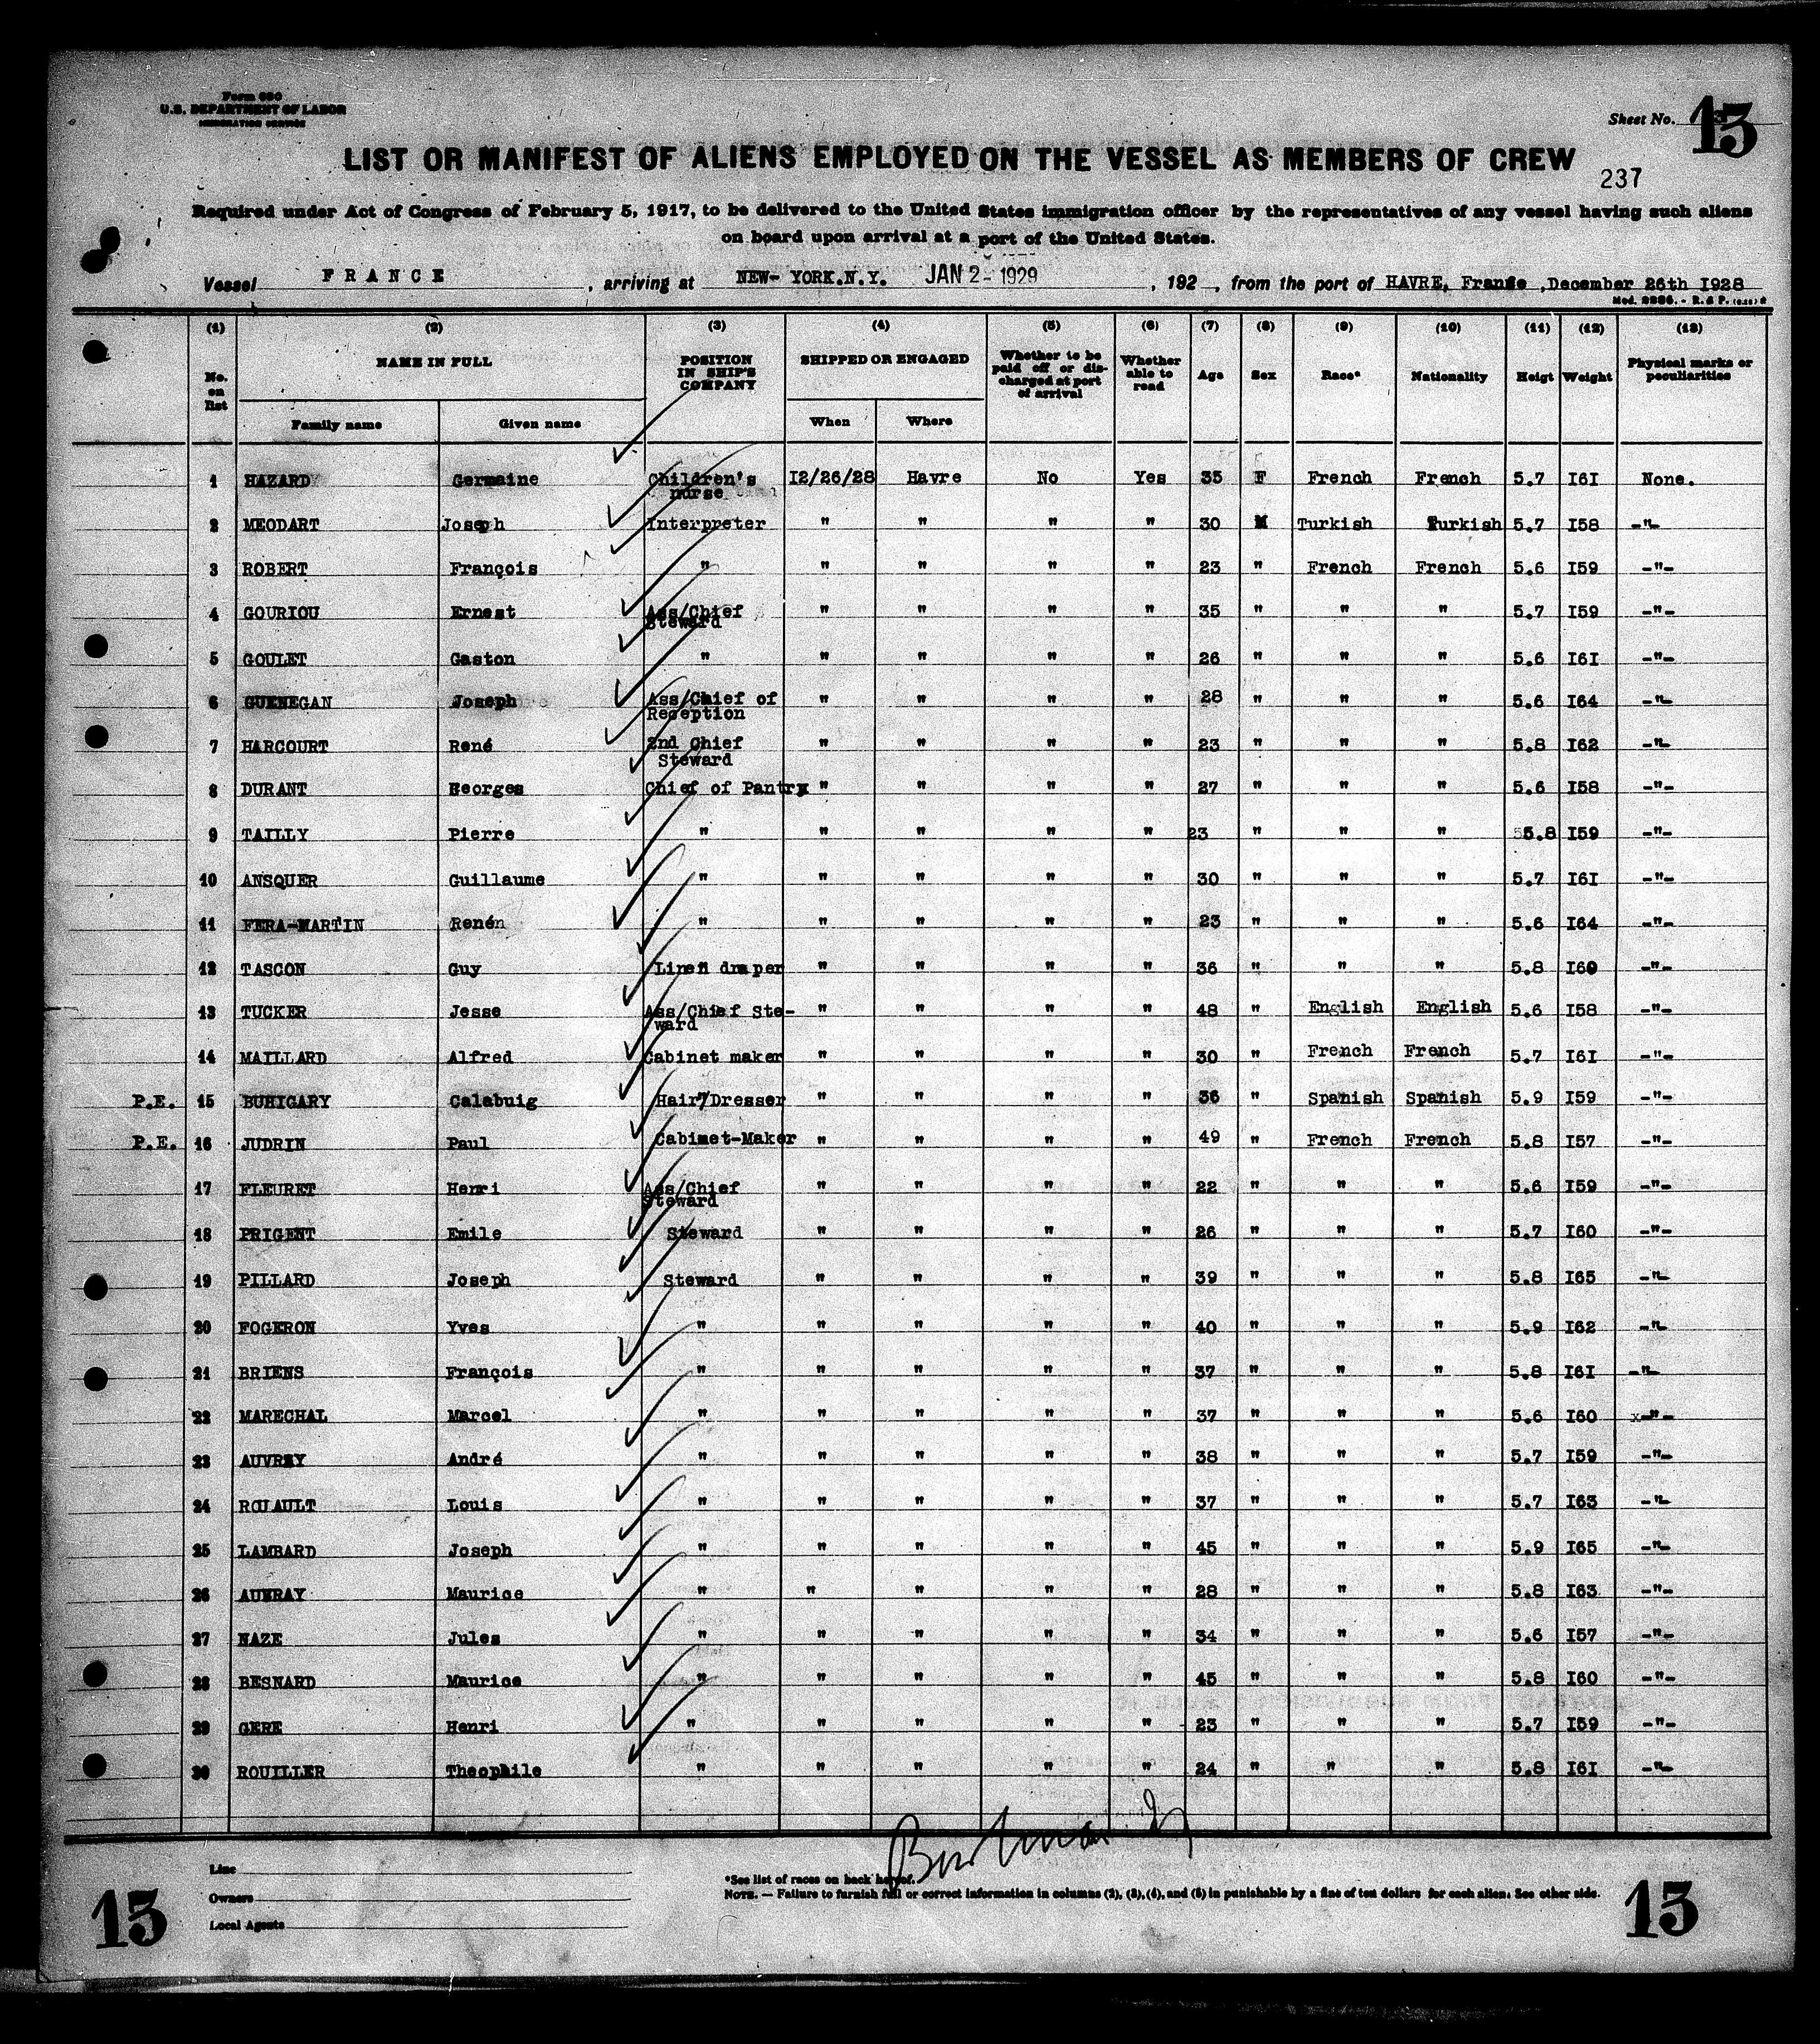 Form 680
U.S. DEPARTMENT OF LABOR
IMMIGRATION SERVICE
Sheet No. 13
LIST OR MANIFEST OF ALIENS EMPLOYED ON THE VESSEL AS MEMBERS OF CREW
237
Required under Act of Congress of February 5, 1917, to be delivered to the United States immigration officer by the representatives of any vessel having such aliens
on board upon arrival at a port of the United States.
Vessel FRANCE, arriving at NEW- YORK.N.Y. JAN 2- 1929, 192 , from the port of HAVRE, France ,December 26th I928
(1) (2) (3) (4) (5) (6) (7) (8) (9) (10) (11) (12) (13)
No. on list NAME IN FULL POSITION IN SHIP'S COMPANY SHIPPED OR ENGAGED Whether to be paid off or discharged at port of arrival Whether able to read Age Sex Race* Nationality Heigt Weight Physical marks or peculiarities
Family name Given name When Where
1 HAZARD Germaine Children's nurse I2/26/28 Havre No Yes 35 F French French 5.7 I6I None.
2 MEODART Joseph Interpreter " " " " 30 M Turkish Turkish 5.7 I58 -"-
3 ROBERT François " " " " " 23 " French French 5.6 I59 -"-
4 GOURIOU Ernest Ass/Chief Steward " " " " 35 " " " 5.7 I59 -"-
5 GOULET Gaston " " " " " 26 " " " 5.6 I6I -"-
6 GUENEGAN Joseph Ass/Chief of Reception " " " " 28 " " " 5.6 I64 -"-
7 HARCOURT René 2nd Chief Steward " " " " 23 " " " 5.8 I62 -"-
8 DURANT Georges Chief of Pantry " " " " 27 " " " 5.6 I58 -"-
9 TAILLY Pierre " " " " " 23 " " " 5.8 I59 -"-
10 ANSQUER Guillaume " " " " " 30 " " " 5.7 I6I -"-
11 FERA-MARTIN René " " " " " 23 " " " 5.6 I64 -"-
12 TASCON Guy Linen draper " " " " 36 " " " 5.8 I60 -"-
13 TUCKER Jesse Ass/Chief Ste-ward " " " " 48 " English English 5.6 I58 -"-
14 MAILLARD Alfred Cabinet maker " " " " 30 " French French 5.7 I6I -"-
P.E. 15 BUHIGARY Calabuig Hair/Dresser " " " " 36 " Spanish Spanish 5.9 I59 -"-
P.E. 16 JUDRIN Paul Cabinet-Maker " " " " 49 " French French 5.8 I57 -"-
17 FLEURET Henri Ass/Chief Steward " " " " 22 " " " 5.6 I59 -"-
18 PRIGENT Emile Steward " " " " 26 " " " 5.7 I60 -"-
19 PILLARD Joseph Steward " " " " 39 " " " 5.8 I65 -"-
20 FOGERON Yves " " " " " 40 " " " 5.9 I62 -"-
21 BRIENS François " " " " " 37 " " " 5.8 I6I -"-
22 MARECHAL Marcel " " " " " 37 " " " 5.6 I60 -"-
23 AUVREY André " " " " " 38 " " " 5.7 I59 -"-
24 ROUAULT Louis " " " " " 37 " " " 5.7 I63 -"-
25 LAMBARD Joseph " " " " " 45 " " " 5.9 I65 -"-
26 AUVRAY Maurice " " " " " 28 " " " 5.8 I63 -"-
27 NAZE Jules " " " " " 34 " " " 5.6 I57 -"-
28 BESNARD Maurice " " " " " 45 " " " 5.8 I60 -"-
29 GERE Henri " " " " " 23 " " " 5.7 I59 -"-
30 ROUILLER Theophile " " " " " 24 " " " 5.8 I6I -"-
Line
Owners
Local Agents
*See list of races on back hereof.
NOTE. — Failure to furnish full or correct information in columns (2), (3), (4), and (5) in punishable by a fine of ten dollars for each alien. See other side.
13
13